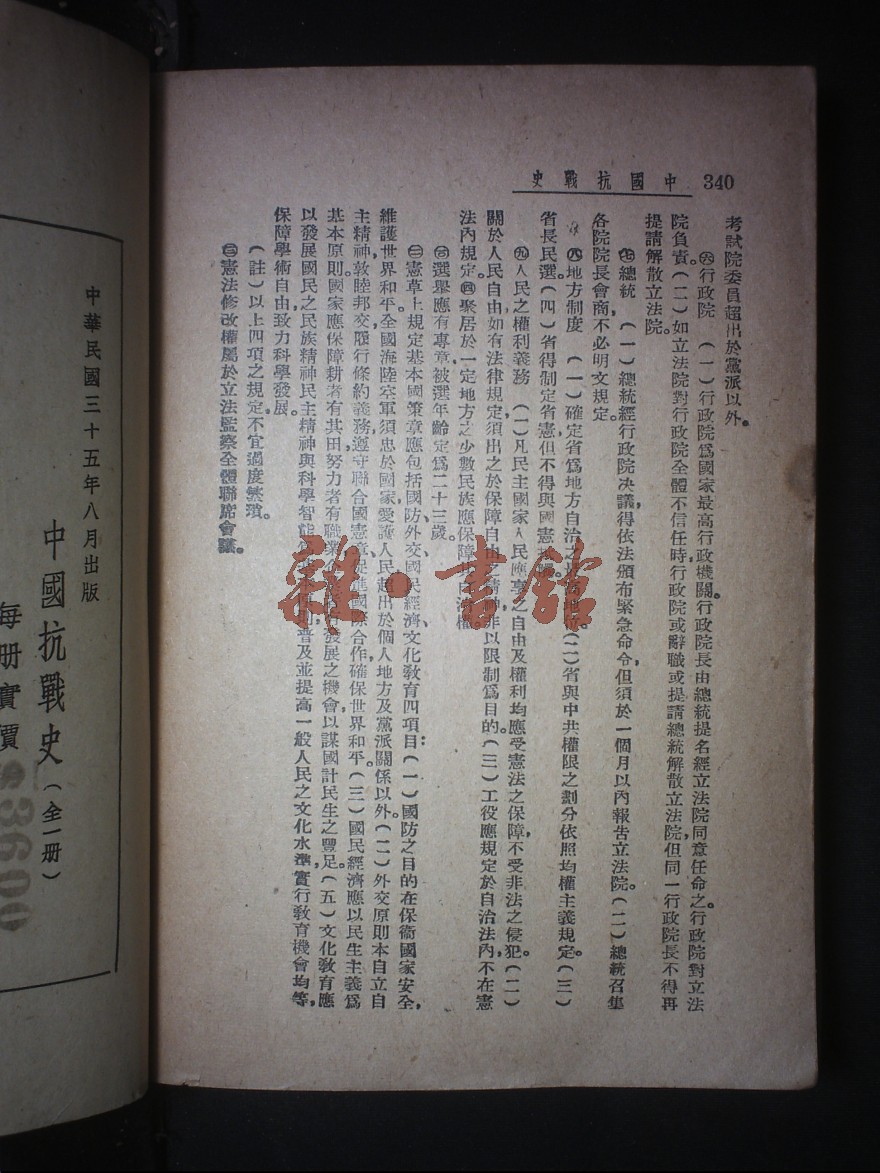 340 中國抗戰史
考試院委員超出於黨派以外。
㈥行政院　(一)行政院爲國家最高行政機關。行政院長由總統提名經立法院同意任命之。行政院對立法
院負責。(二)如立法院對行政院全體不信任時行政院或辭職或提請總統解散立法院，但同一行政院長不得再
提請解散立法院。
㈦總統　(一)總統經行政院决議，得依法頒布緊急命令，但須於一個月以內報告立法院。(二)總統召集
各院院長會商不必明文規定。
㈧地方制度　(一)確定省爲地方自治之(二)省與中共權限之劃分依照均權主義規定。(三)
省長民選(四)省得制定省憲但不得與國憲
㈨人民之權利義務　(一)凡民主國家人民應享之自由及權利均應受憲法之保障，不受非法之侵犯。(二)
關於人民自由如有法律規定須出之於保障自由之精神，非以限制爲目的。(三)工役應規定於自治法內，不在憲
法內規定。㈣聚居於一定地方之少數民族應保障其自治權。
㈩選舉應有專章被選年齡定爲二十三歲。
憲草上規定基本國策章應包括國防、外交、國民經濟、文化教育四項目：(一)國防之目的在保衞國家安全，
維護世界和平。全國海陸空軍須忠於國家，愛護人民超出於個人地方及黨派關係以外。(二)外交原則本自立自
主精神，敦睦邦交，履行條約義務，遵守聯合國憲章促進國際合作確保世界和平。(三)國民經濟應以民生主義爲
基本原則。國家應保障耕者有其田努力者有職業發展之機會以謀國計民生之豐足。(五)文化教育應
以發展國民之民族精神民主精神與科學智能普及並提高一般人民之文化水準，實行教育機會均等，
保障學術自由致力科學發展。
(註)以上四項之規定，不宜過度繁瑣。
憲法修改權屬於立法監察全體聯席會議。
中華民國三十五年八月出版
中國抗戰史(全一册)
每册實價
3600
雜·書館